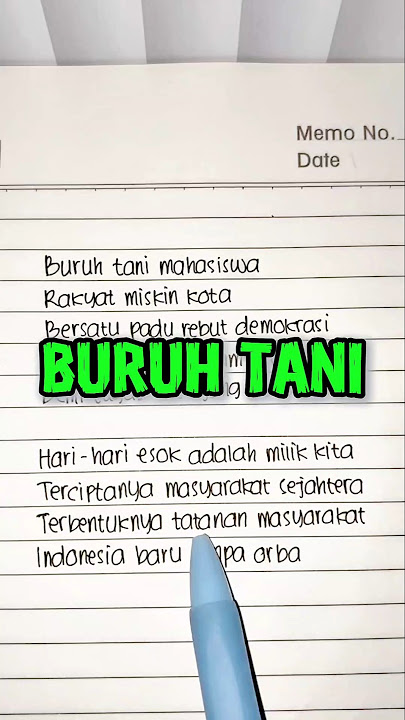 Memo No.
Date
Buruh tani mahasiswa
Rakyat miskin kota
Bersatu padu rebut demokrasi
BURUH TANI
Hari-hari esok adalah milik kita
Terciptanya masyarakat sejahtera
Terbentuknya tatanan masyarakat
Indonesia baru orba